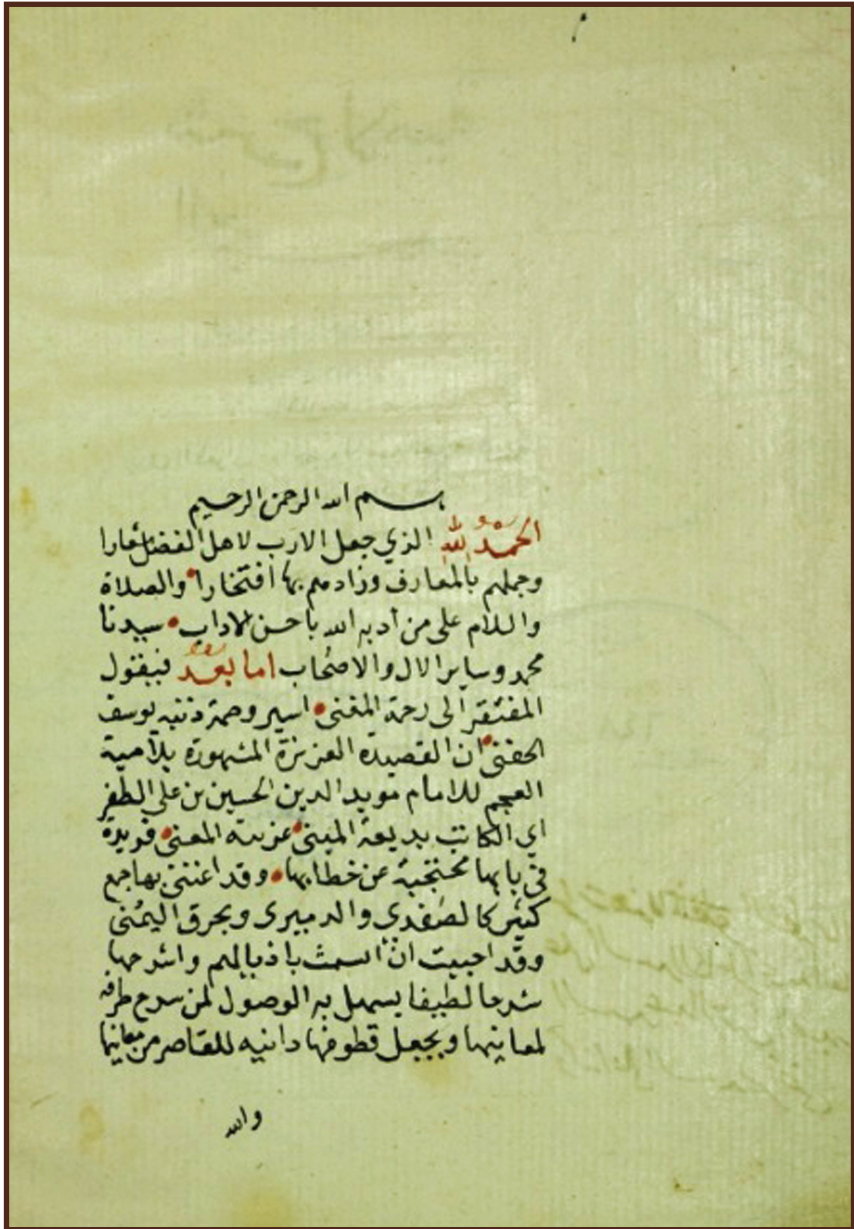 بسم الله الرحمن الرحيم
الحمد لله الذي جعل الادب لاهل الفضل شعارا
وجملهم بالمعارف وزادهم بها افتخارا والصلاة
والسلام على من أدبه الله باحسن الاداب سيدنا
محمد وساير الال والاصحاب اما بعد فيقول
المفتقر الى رحمة المغنى اسير وصمة ذنبه يوسف
الحفنى ان القصيدة العزيزة المشهورة بلامية
العجم للامام مويد الدين الحسين بن على الطغر
اي الكاتب بديعة المبنى غريبة المعنى فريدة
في بابها محتجبة عن خطابها وقد اعتنى بها جمع
كثير كالصفدي والدميرى وبحرق اليمنى
وقد احببت ان اتشبث باذيالهم واشرحها
شرحا لطيفا يسهل به الوصول لمن سرح طرفه
لمعاينها ويجعل قطوفها دانيه للقاصر من معانيها
والله